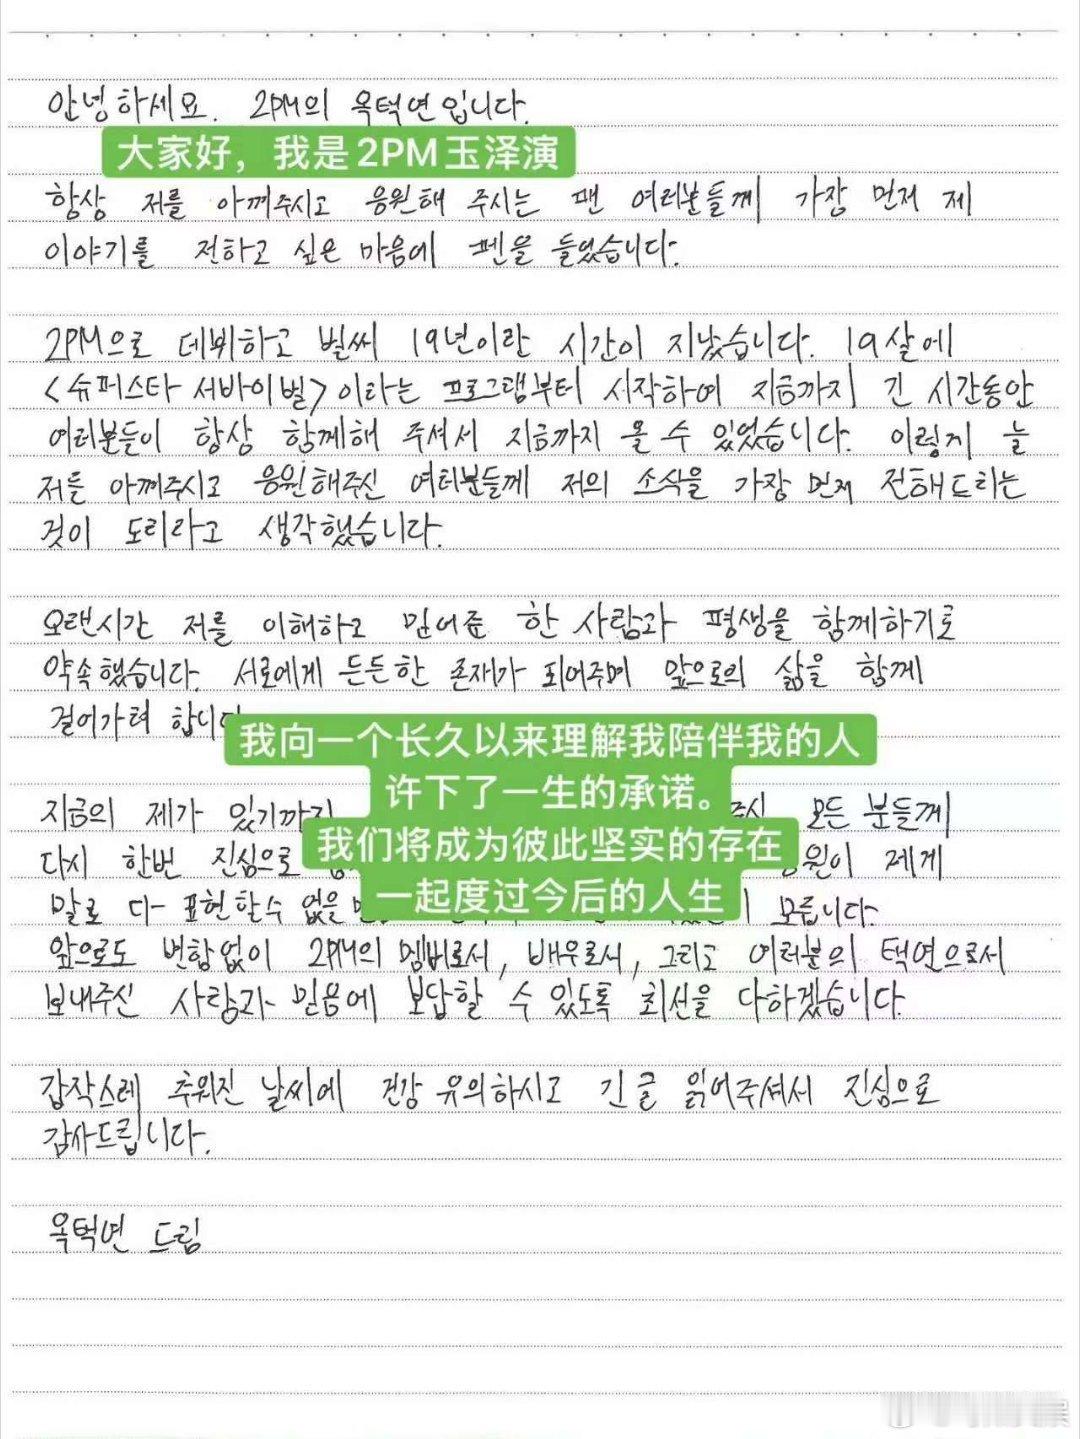 안녕하세요. 2PM의 옥택연입니다.
大家好，我是2PM玉泽演
항상 저를 아껴주시고 응원해 주시는 팬 여러분들께 가장 먼저 제
이야기를 전하고 싶은 마음에 펜을 들었습니다.
2PM으로 데뷔하고 벌써 19년이란 시간이 지났습니다. 19살에
<슈퍼스타 서바이벌>이라는 프로그램부터 시작하여 지금까지 긴 시간동안
여러분들이 항상 함께해 주셔서 지금까지 올 수 있었습니다. 이렇게 늘
저를 아껴주시고 응원해주신 여러분들께 저의 소식을 가장 먼저 전해드리는
것이 도리라고 생각했습니다.
오랜시간 저를 이해하고 믿어준 한 사람과 평생을 함께하기로
약속했습니다. 서로에게 든든한 존재가 되어주며 앞으로의 삶을 함께
걸어가려 합니다
我向一个长久以来理解我陪伴我的人
许下了一生的承诺。
지금의 제가 있기까지 모든 분들께
我们将成为彼此坚实的存在
다시 한번 진심으로 제게
一起度过今后的人生
말로 다 표현할수 없을 모릅니다.
앞으로도 변함없이 2PM의 멤버로서, 배우로서, 그리고 여러분의 택연으로서
보내주신 사랑과 믿음에 보답할 수 있도록 최선을 다하겠습니다.
갑작스레 추워진 날씨에 건강 유의하시고 긴 글 읽어주셔서 진심으로
감사드립니다.
옥택연 드림